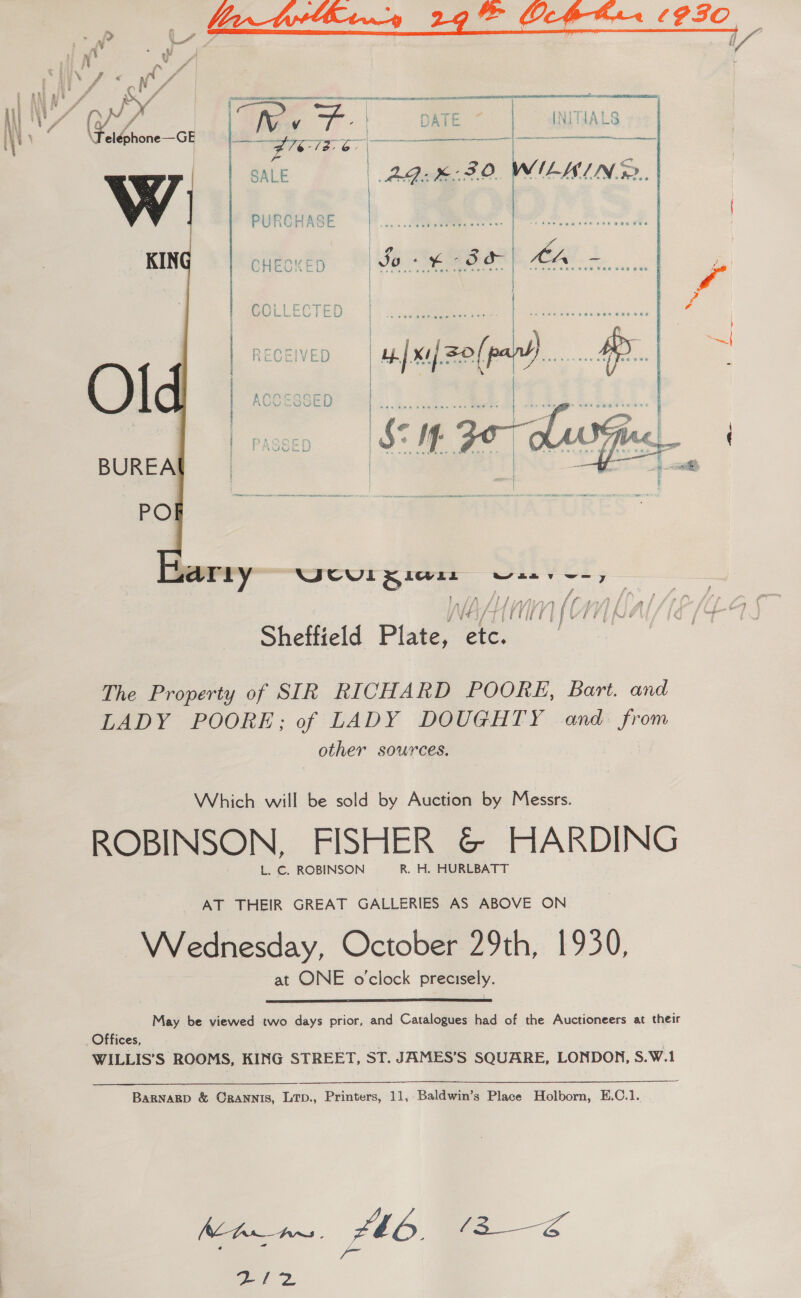 Mr Wilkins 29th October 1930
Telephone—GE
R. F. DATE INITIALS
£76-13-6
SALE 29.X.30 WILKINS.
PURCHASE
CHECKED 30.X.30
COLLECTED
RECEIVED 4/XI/30 (part)
ACCESSED
PASSED 5. 11. 30
W
KING
Old
BUREA
POR
Early Georgian Silver,
WA/HMM/
Sheffield Plate, etc.
The Property of SIR RICHARD POORE, Bart. and
LADY POORE; of LADY DOUGHTY and from
other sources.
Which will be sold by Auction by Messrs.
ROBINSON, FISHER & HARDING
L. C. ROBINSON R. H. HURLBATT
AT THEIR GREAT GALLERIES AS ABOVE ON
Wednesday, October 29th, 1930,
at ONE o'clock precisely.
May be viewed two days prior, and Catalogues had of the Auctioneers at their
Offices,
WILLIS'S ROOMS, KING STREET, ST. JAMES'S SQUARE, LONDON, S.W.1
BARNARD & CRANNIS, LTD., Printers, 11, Baldwin's Place Holborn, E.C.1.
13—6
212